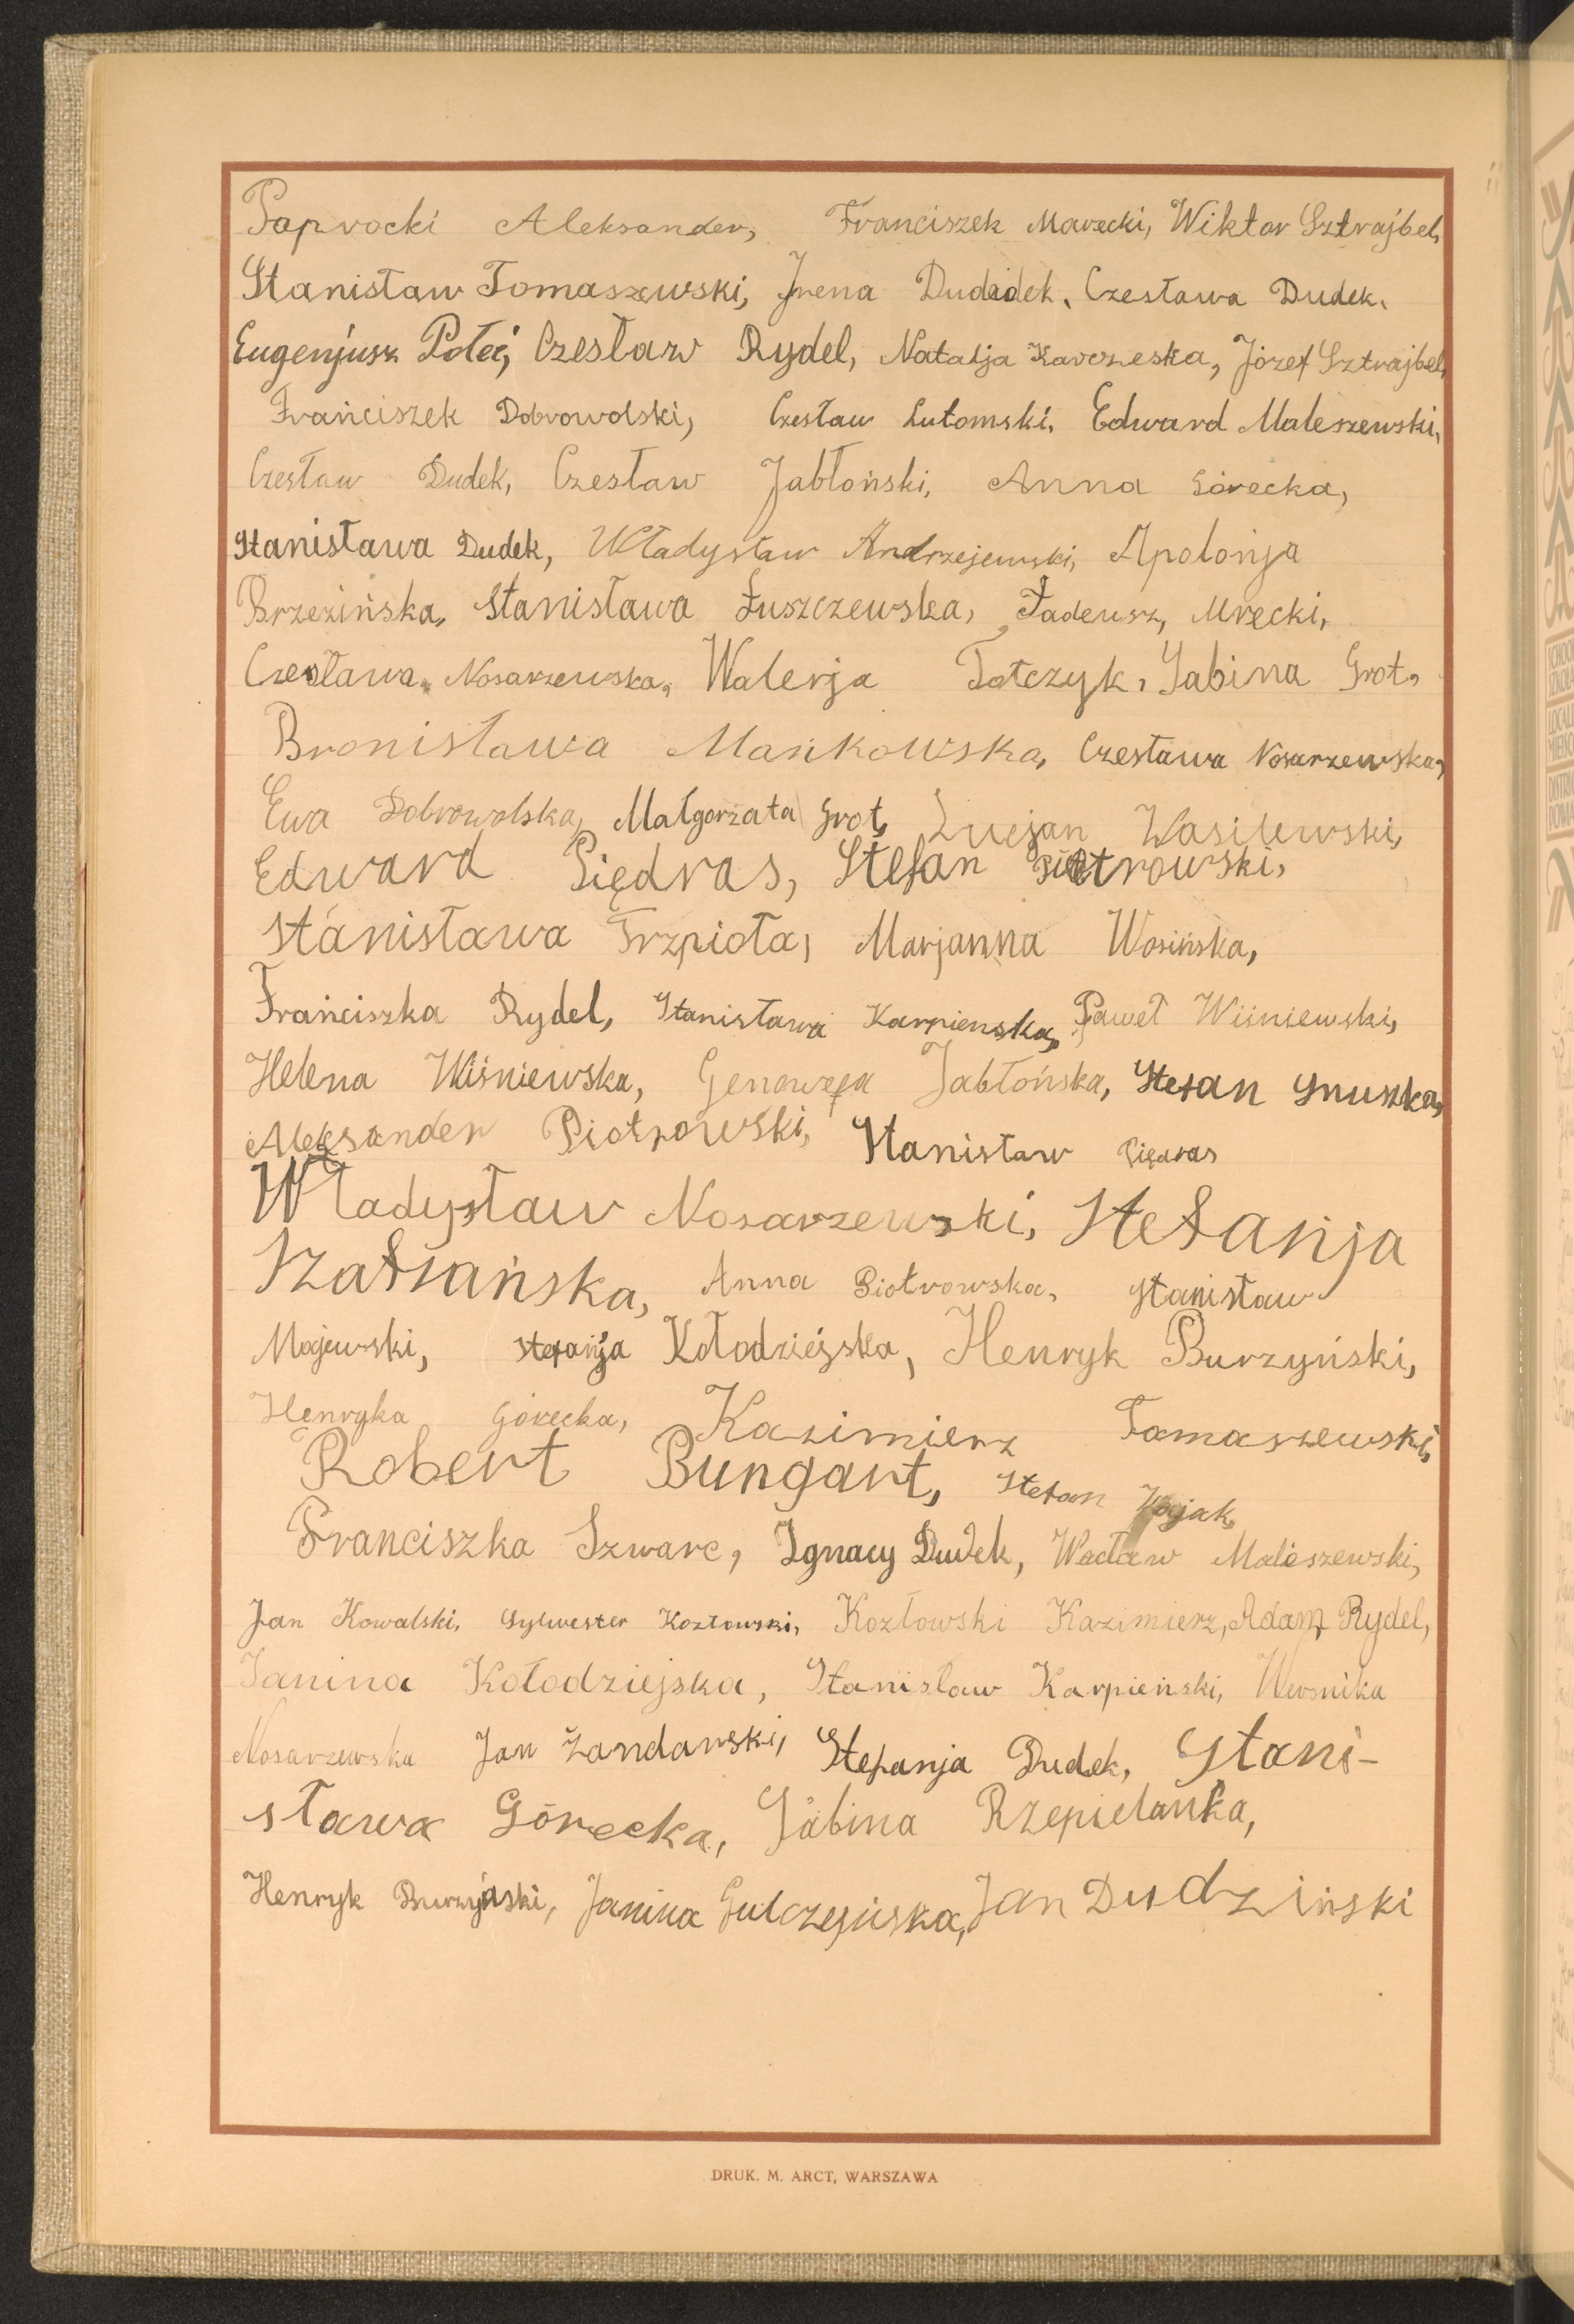 Paprocki Aleksander, Franciszek Marecki, Wiktor Sztrajbel,
Stanisław Tomaszewski, Irena Dudadek, Czesława Dudek,
Eugenjusz Połeć, Czesław Rydel, Natalja Karczeska, Józef Sztrajbel,
Franciszek Dobrowolski, Czesław Lutomski, Edward Maleszewski,
Czesław Dudek, Czesław Jabłoński, Anna Górecka,
Stanisława Dudek, Władysław Andrzejewski, Apolonja
Brzezińska, Stanisława Łuszczewska, Tadeusz, Mrecki,
Czesława Nosarzewska, Walerja Tołczyk, Sabina Grot,
Bronisława Mańkowska, Czesława Nosarzewska,
Ewa Dobrowolska, Małgorzata Grot, Lucjan Wasilewski,
Edward Piędras, Stefan Piotrowski,
Stanisława Trzpioła, Marjanna Wosińska,
Franciszka Rydel, Stanisława Karpienska, Paweł Wiśniewski,
Helena Wiśniewska, Genowefa Jabłońska, Stefan Gnuszka,
Aleksander Piotrowski, Stanisław Piędras
Władysław Nosarzewski, Stefanja
Szafrańska, Anna Piotrowska, Stanisław
Majewski, Stefanja Kołodziejska, Henryk Burzyński,
Henryka Górecka, Kazimierz Tamaszewski,
Robert Bungart, Stefan Kojak,
Franciszka Szwarc, Ignacy Dudek, Wacław Maleszewski,
Jan Kowalski, Sylwester Kozłowski, Kozłowski Kazimierz, Adam Rydel,
Janina Kołodziejska, Stanisław Karpieński, Weronika
Nosarzewska Jan Żandarski, Stefanja Dudek, Stani-
sława Górecka, Sabina Rzepielanka,
Henryk Burzyński, Janina Gulczyńska, Jan Dudziński
DRUK. M. ARCT, WARSZAWA